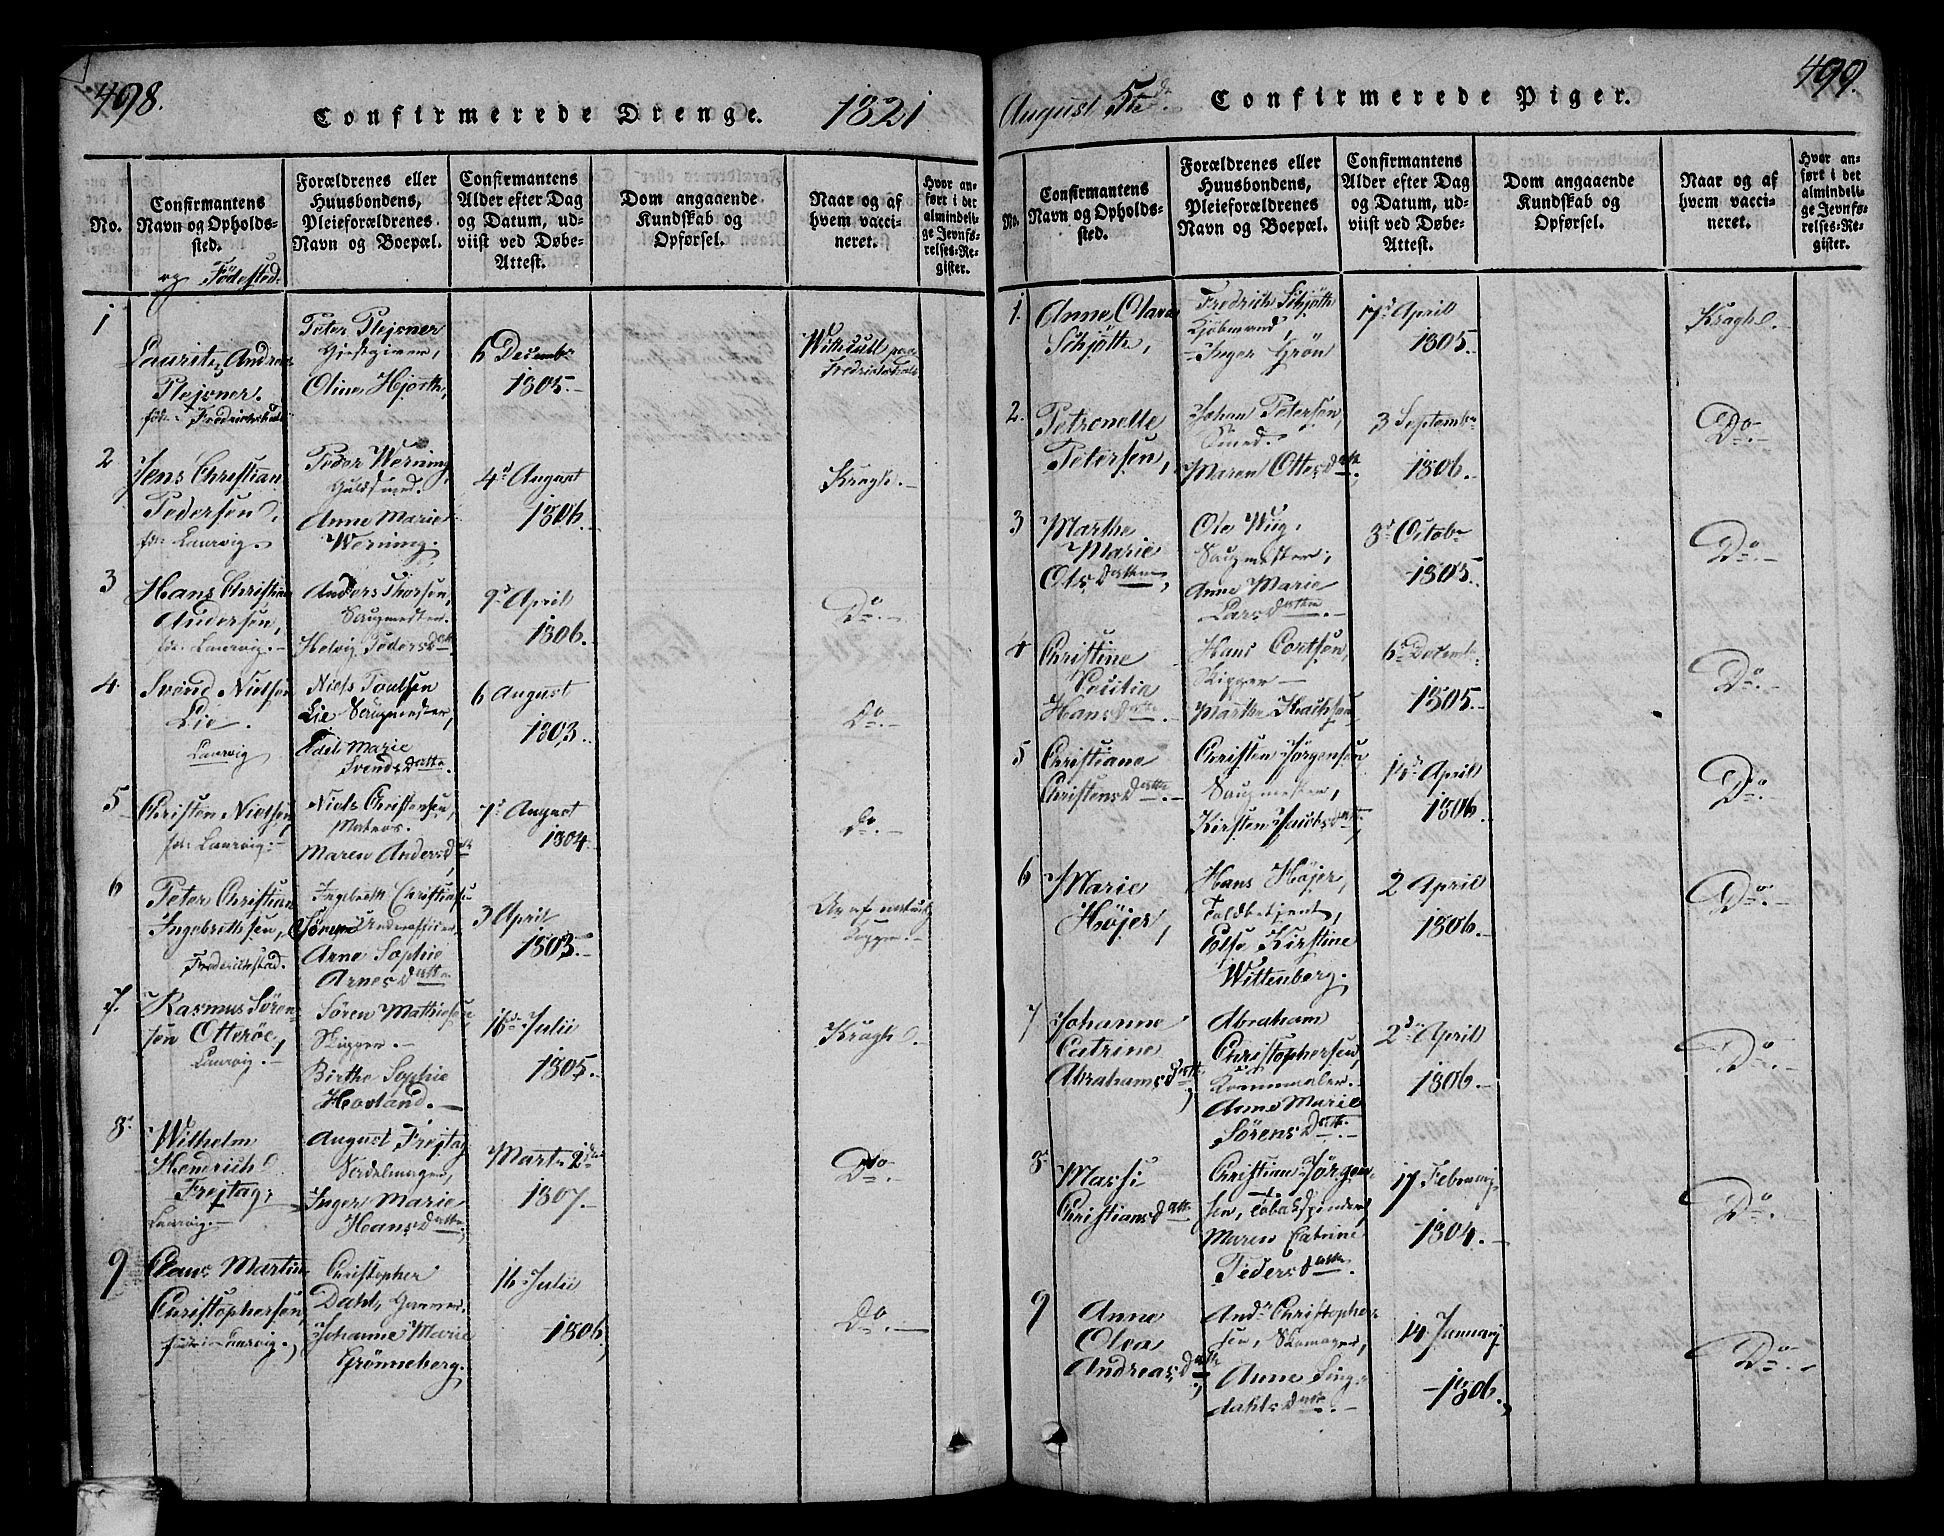 498.
Confirmerede Drenge.
1821
No.
Confirmantens Navn og Opholds-sted.
og Fødested
Forældrenes eller Huusbondens, Pleieforældrenes Navn og Boepæl.
Confirmantens Alder efter Dag og Datum, ud-viist ved Døbe-Attest.
Dom angaaende Kundskab og Opførsel.
Naar og af hvem vacci-neret.
Hvor an-ført i det almindeli-ge Jevnfø-relses-Re-gister.
1
Lauritz Andreas
Plejsner.
Peter Plejsner
Gjestgiver,
Oline Hjorth,
6 Decembr
1805.
Fredrikshald
2
Jens Christian
Pedersen,
Laurvig.
Peder Werning
Anne Marie
Werning.
4d August
1806.
Kragh.
3
Hans Christian
Andersen,
Laurvig.
Anders Thorsen,
Saugmester.
Helvig Pedersdatt.
9d April
1806.
Do.
4
Svend Nielsen
Lie.
Laurvig
Niels Poulsen
Lie Saugmester,
Edel Marie
Svendsdatter.
6 August
1803.
Do.
5
Christen Nielsen
Laurvig.
Niels Christensen,
Matros.
Maren Andersdatt
7d August
1804
Do.
6
Peter Christian
Ingebrethsen,
Frederikstad.
Ingebreth Christiansen
Underofficier
Arne Sophie
Arnesdatter
3 April
1803.
Kopper.
7.
Rasmus Søren-
sen Otterøe,
Laurvig.
Søren Mathiesen,
Skipper.
Birthe Sophie
Hovland.
16de Julii
1805.
Kragh.
8.
Wilhelm
Hendrich
Freitag,
Laurvig.
August Freitag
Sadelmager,
Inger Marie
Hansdatter
Marts 2den
1807.
Do.
9
Claus Martin
Christophersen,
Laurvig.
Christopher
Dahl,
Johanne Marie
Grønneberg.
16 Julii
1806,
Do.
August 5te
Confirmerede Piger.
499.
No.
Confirmantens Navn og Opholds-sted.
Forældrenes eller Huusbondens, Pleieforældrenes Navn og Boepæl.
Confirmantens Alder efter Dag og Datum, ud-viist ved Døbe-Attest.
Dom angaaende Kundskab og Opførsel.
Naar og af hvem vacci-neret.
Hvor an-ført i det almindeli-ge Jevnfø-relses-Re-gister.
1.
Anne Olava
Schjøth,
Fredrich Schjøth
Kjøbmand,
Inger Grøn
17d April
1805.
Kragh.
2.
Petronelle
Petersen,
Johan Petersen,
Smed.
Maren Ottesdatt.
3 Septembr
1806.
Do.
3
Marthe
Marie
Olsdatter,
Ole Wug,
Saugmester,
Anne Marie
Larsdatter.
3d Octobr
1805.
Do.
4
Christine
Cecilia
Hansdatt.
Hans Cortsen,
Skipper
Marthe
6d Decemb.
1805.
Do.
5
Christiane
Christensdatt.
Christen Jørgensen
Saugmester,
Kirsten Jacobsdatt.
14d April
1806.
Do.
6
Marie
Højer,
Hans Højer,
Toldbetjent,
Else Kirstine
Wittenberg.
2 April
1806.
Do.
7
Johanne
Catrine
Abrahamsdatt.
Abraham
Christophersen,
Kornmaaler.
Anne Marie
Sørensdatt.
2d April
1806.
Do.
8
Massi
Christiansdatt
Christian Jørgen-
sen, Tobakspinder,
Maren Catrine
Pedersdatt.
17 Februarj
1804.
Do.
9
Anne
Olea
Andreasdatt
Andrs Christopher-
sen, Skomager,
Anne Ling-
dahlsdatt.
14 Januarj
1806.
Do.